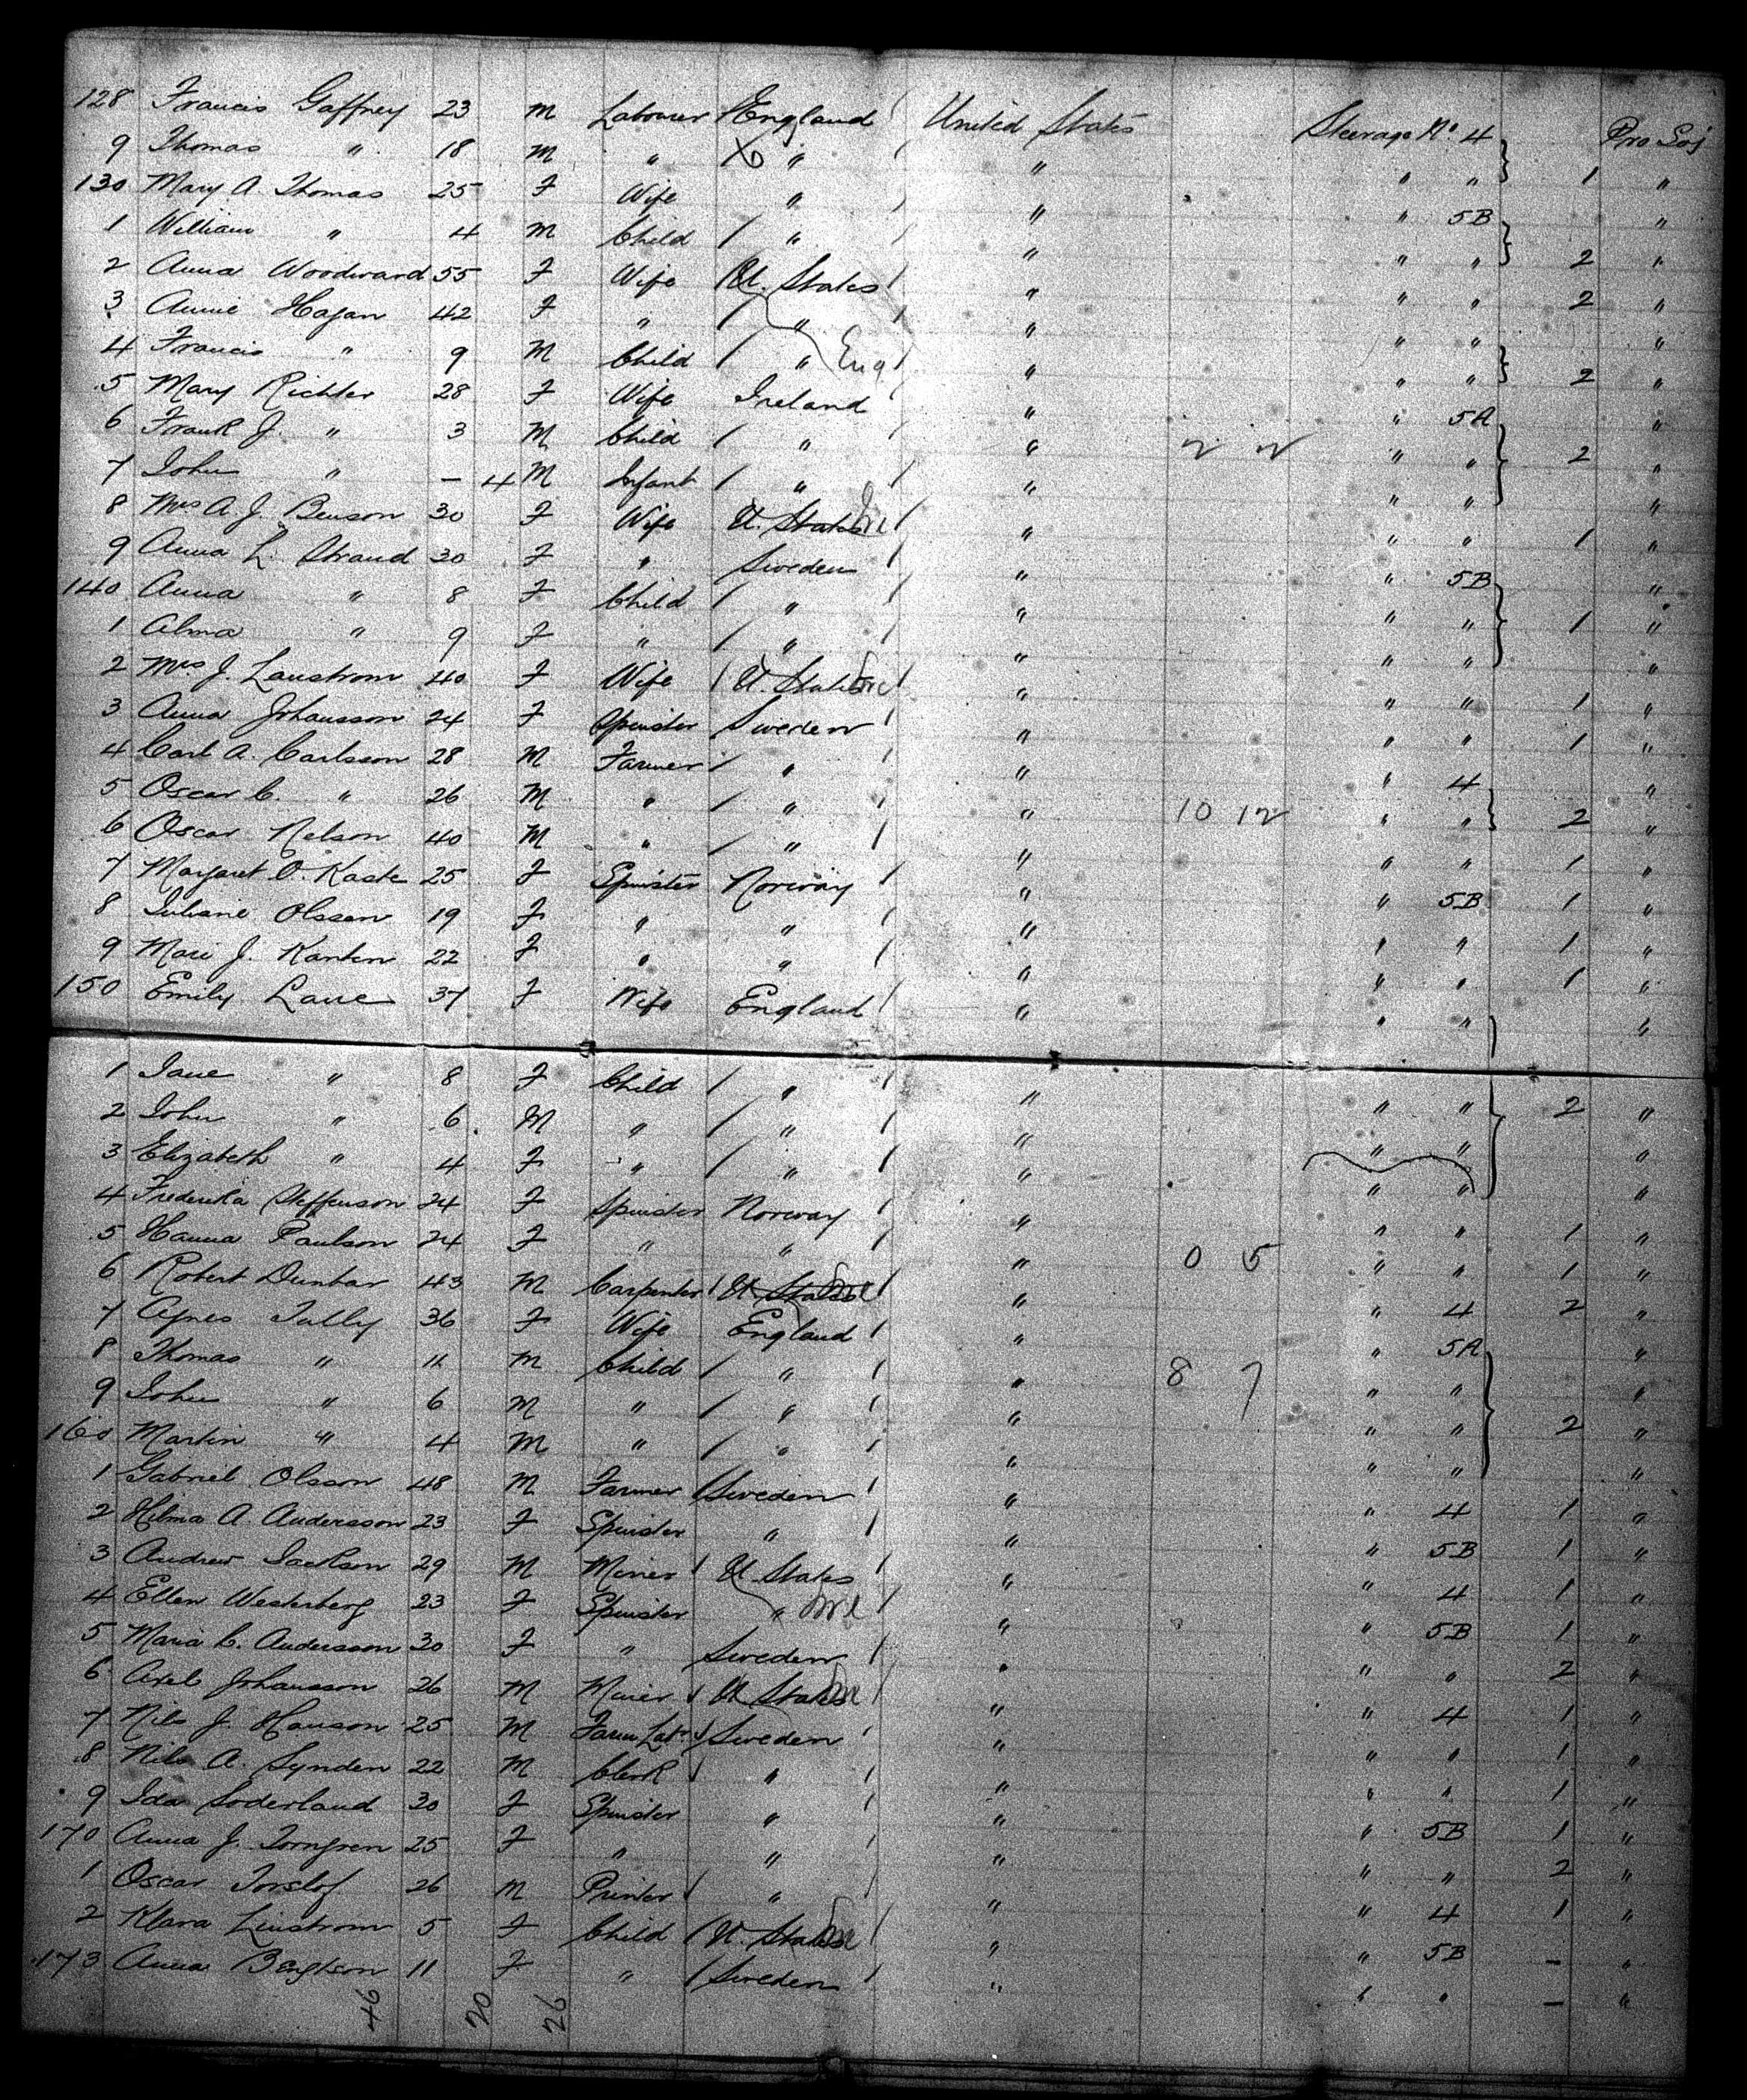 128 Francis Gaffney 23 M Labourer England United States Steerage No 4 Pro Soj
9 Thomas " 18 M " " " " " 1 "
130 Mary A Thomas 25 F Wife " " " 5B "
1 William " 4 M Child " " " " 2 "
2 Anna Woodward 55 F Wife U. States " " " 2 "
3 Annie Hagan 42 F " " " " " "
4 Francis " 9 M Child " Eng " " " 2 "
5 Mary Richter 28 F Wife Ireland " " 5A "
6 Frank J. " 3 M Child " " 2 2 " " 2 "
7 John " – 4 M Infant " " " " "
8 Mrs A. J. Benson 30 F Wife U. States " " " 1 "
9 Anna L. Strand 30 F " Sweden " " 5B "
140 Anna " 8 F Child " " " " 1 "
1 Alma " 9 F " " " " " "
2 Mrs. J. Lanstrom 40 F Wife U. States " " " 1 "
3 Anna Johansson 24 F Spinster Sweden " " " 1 "
4 Carl A. Carlsson 28 M Farmer " " " 4 "
5 Oscar C. " 26 M " " " 10 12 " " 2 "
6 Oscar Nelson 40 M " " " " " 1 "
7 Margaret O. Kaste 25 F Spinster Norway " " 5B 1 "
8 Juliane Olssen 19 F " " " " " 1 "
9 Mari J. Kanten 22 F " " " " " 1 "
150 Emily Lane 37 F Wife England " " " "
1 Jane " 8 F Child " " " " 2 "
2 John " 6 M " " " " " "
3 Elizabeth " 4 F " " " " " "
4 Frederika Steffenson 24 F Spinster Norway " " " 1 "
5 Hanna Paulson 24 F " " " 0 5 " " 1 "
6 Robert Dunbar 43 M Carpenter U States " " 4 2 "
7 Agnes Tully 36 F Wife England " " 5A "
8 Thomas " 11 M Child " " 8 7 " " "
9 John " 6 M " " " " " 2 "
160 Martin " 4 M " " " " " "
1 Gabriel Olsson 48 M Farmer Sweden " " 4 1 "
2 Hilma A. Andersson 23 F Spinster " " " 5B 1 "
3 Andrew Jackson 29 M Miner U. States " " 4 1 "
4 Ellen Westerberg 23 F Spinster " " " 5B 1 "
5 Maria C. Andersson 30 F " Sweden " " " 2 "
6 Axel Johansson 26 M Miner U States " " 4 1 "
7 Nils J. Hanson 25 M Farm Labr. Sweden " " " 1 "
8 Nils A. Lynden 22 M Clerk " " " " 1 "
9 Ida Soderlaud 30 F Spinster " " " 5B 1 "
170 Anna J. Torngren 25 F " " " " " 2 "
1 Oscar Torslof 26 M Printer " " " 4 1 "
2 Klara Linstrom 5 F Child U. States " " 5B – "
173 Anna Bengtson 11 F " Sweden " " " – "
46 20 26